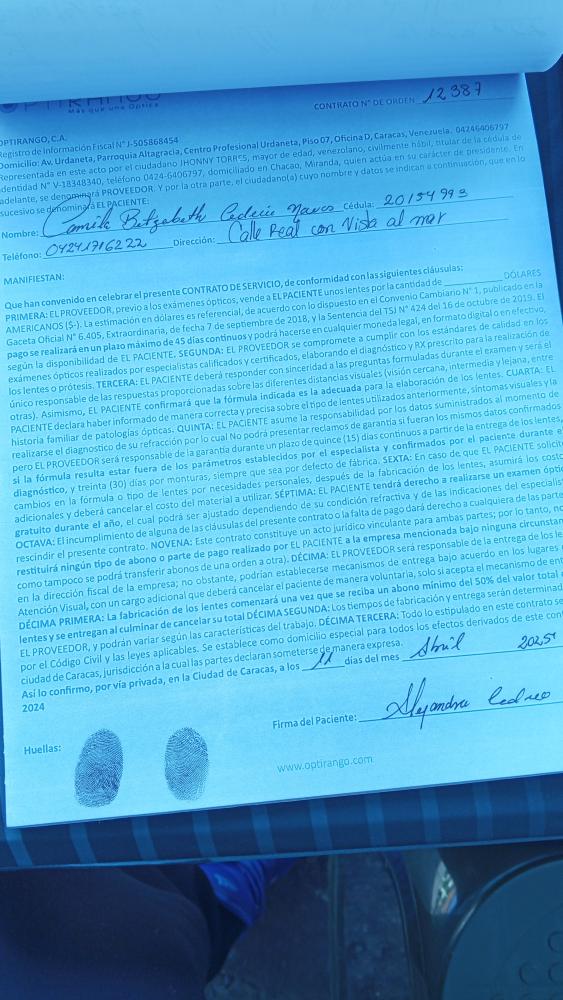 OPTIRANGO
Más que una Óptica
CONTRATO N° DE ORDEN 12387
OPTIRANGO, C.A.
Registro de Información Fiscal N° J-505868454
Domicilio: Av. Urdaneta, Parroquia Altagracia, Centro Profesional Urdaneta, Piso 07, Oficina D, Caracas, Venezuela. 04246406797
Representada en este acto por el ciudadano JHONNY TORRES, mayor de edad, venezolano, civilmente hábil, titular de la cédula de
identidad N° V-18348340, teléfono 0424-6406797, domiciliado en Chacao, Miranda, quien actúa en su carácter de presidente. En
adelante, se denominará PROVEEDOR. Y por la otra parte, el ciudadano(a) cuyo nombre y datos se indican a continuación, que en lo
sucesivo se denominará EL PACIENTE:
Nombre: Camila Betzabeth Cedeño Cédula: 20154993
Teléfono: 04241716222 Dirección: Calle Real con Vista al mar
MANIFIESTAN:
Que han convenido en celebrar el presente CONTRATO DE SERVICIO, de conformidad con las siguientes cláusulas:
PRIMERA: EL PROVEEDOR, previo a los exámenes ópticos, vende a EL PACIENTE unos lentes por la cantidad de ________ DÓLARES
AMERICANOS ($-). La estimación en dólares es referencial, de acuerdo con lo dispuesto en el Convenio Cambiario N° 1, publicado en la
Gaceta Oficial N° 6.405, Extraordinaria, de fecha 7 de septiembre de 2018, y la Sentencia del TSJ N° 424 del 16 de octubre de 2019. El
pago se realizará en un plazo máximo de 45 días continuos y podrá hacerse en cualquier moneda legal, en formato digital o en efectivo,
según la disponibilidad de EL PACIENTE. SEGUNDA: EL PROVEEDOR se compromete a cumplir con los estándares de calidad en los
exámenes ópticos realizados por especialistas calificados y certificados, elaborando el diagnóstico y RX prescrito para la realización de
los lentes o prótesis. TERCERA: EL PACIENTE deberá responder con sinceridad a las preguntas formuladas durante el examen y será el
único responsable de las respuestas proporcionadas sobre las diferentes distancias visuales (visión cercana, intermedia y lejana, entre
otras). Asimismo, EL PACIENTE confirmará que la fórmula indicada es la adecuada para la elaboración de los lentes. CUARTA: EL
PACIENTE declara haber informado de manera correcta y precisa sobre el tipo de lentes utilizados anteriormente, síntomas visuales y la
historia familiar de patologías ópticas. QUINTA: EL PACIENTE asume la responsabilidad por los datos suministrados al momento de
realizarse el diagnostico de su refracción por lo cual No podrá presentar reclamos de garantía si fueran los mismos datos confirmados
pero EL PROVEEDOR será responsable de la garantía durante un plazo de quince (15) días continuos a partir de la entrega de los lentes,
si la fórmula resulta estar fuera de los parámetros establecidos por el especialista y confirmados por el paciente durante e
diagnóstico, y treinta (30) días por monturas, siempre que sea por defecto de fábrica. SEXTA: En caso de que EL PACIENTE solicit
cambios en la fórmula o tipo de lentes por necesidades personales, después de la fabricación de los lentes, asumirá los costo
adicionales y deberá cancelar el costo del material a utilizar. SÉPTIMA: EL PACIENTE tendrá derecho a realizarse un examen óptic
gratuito durante el año, el cual podrá ser ajustado dependiendo de su condición refractiva y de las indicaciones del especialis
OCTAVA: El incumplimiento de alguna de las cláusulas del presente contrato o la falta de pago dará derecho a cualquiera de las parte
rescindir el presente contrato. NOVENA: Este contrato constituye un acto jurídico vinculante para ambas partes; por lo tanto, no
restituirá ningún tipo de abono o parte de pago realizado por EL PACIENTE a la empresa mencionada bajo ninguna circunstan
como tampoco se podrá transferir abonos de una orden a otra). DÉCIMA: EL PROVEEDOR será responsable de la entrega de los le
en la dirección fiscal de la empresa; no obstante, podrían establecerse mecanismos de entrega bajo acuerdo en los lugares
Atención Visual, con un cargo adicional que deberá cancelar el paciente de manera voluntaria, solo si acepta el mecanismo de ent
DÉCIMA PRIMERA: La fabricación de los lentes comenzará una vez que se reciba un abono mínimo del 50% del valor total
lentes y se entregan al culminar de cancelar su total DÉCIMA SEGUNDA: Los tiempos de fabricación y entrega serán determinad
EL PROVEEDOR, y podrán variar según las características del trabajo. DÉCIMA TERCERA: Todo lo estipulado en este contrato se
por el Código Civil y las leyes aplicables. Se establece como domicilio especial para todos los efectos derivados de este con
ciudad de Caracas, jurisdicción a la cual las partes declaran someterse de manera expresa.
Así lo confirmo, por vía privada, en la Ciudad de Caracas, a los 11 días del mes Abril 2025
2024
Firma del Paciente: Alejandra Cedeño
Huellas:
www.optirango.com